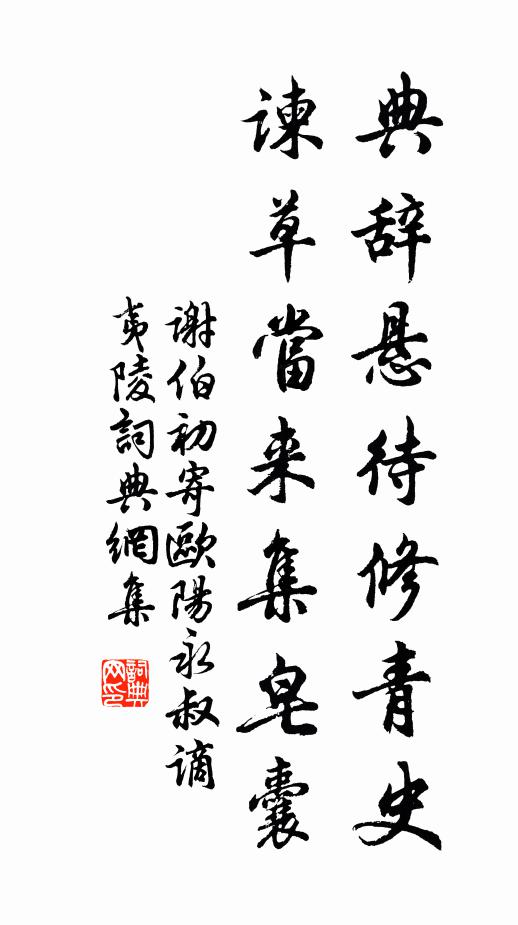 典辞悬待修青史
諫草當来集皂囊
谢伯初寄歐陽永叔謫
夷陵詞典網集
詞典网印